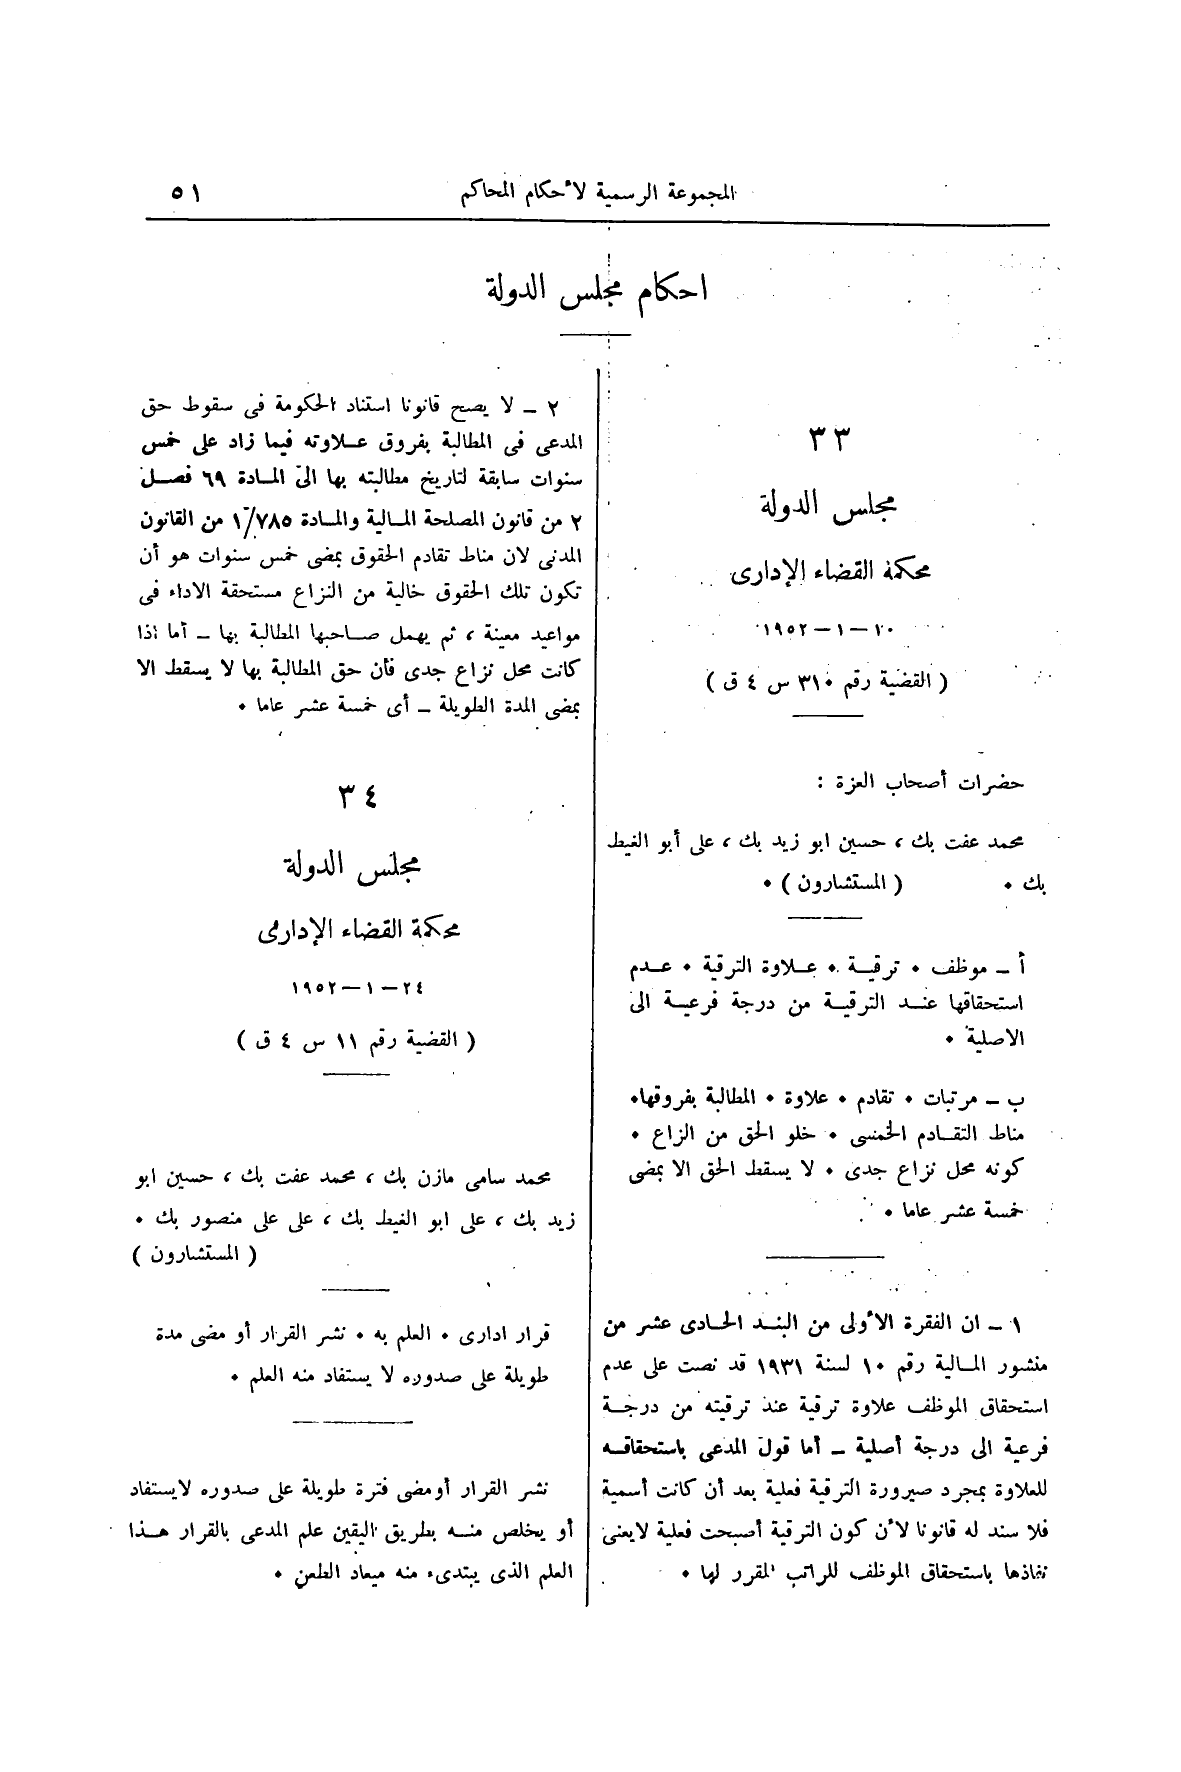 المجموعة الرسمية لأحكام المحاكم
٥١
احكام مجلس الدولة
٣٣
مجلس الدولة
محكمة القضاء الإدارى
١٠ – ١ – ١٩٥٢
( القضية رقم ٣١٠ س ٤ ق )
حضرات أصحاب العزة :
محمد عفت بك ، حسين ابو زيد بك ، على أبو الغيط
بك . ( المستشارون ) .
أ – موظف . ترقية . علاوة الترقية . عدم
استحقاقها عند الترقية من درجة فرعية الى
الاصلية .
ب – مرتبات . تقادم . علاوة . المطالبة بفروقها.
مناط التقادم الخمسى . خلو الحق من النزاع .
كونه محل نزاع جدى . لا يسقط الحق الا بمضى
خمسة عشر عاما .
١ – ان الفقرة الأولى من البند الحادى عشر من
منشور المالية رقم ١٠ لسنة ١٩٣١ قد نصت على عدم
استحقاق الموظف علاوة ترقية عند ترقيته من درجة
فرعية الى درجة أصلية – أما قول المدعى باستحقاقه
للعلاوة بمجرد صيرورة الترقية فعلية بعد أن كانت أسمية
فلا سند له قانونا لأن كون الترقية أصبحت فعلية لايعنى
نفاذها باستحقاق الموظف للراتب المقرر لها .
٢ – لا يصح قانونا استناد الحكومة فى سقوط حق
المدعى فى المطالبة بفروق علاوته فيما زاد على خمس
سنوات سابقة لتاريخ مطالبته بها الى المادة ٦٩ فصل
٢ من قانون المصلحة المالية والمادة ١/٧٨٥ من القانون
المدنى لان مناط تقادم الحقوق بمضى خمس سنوات هو أن
تكون تلك الحقوق خالية من النزاع مستحقة الاداء فى
مواعيد معينة ، ثم يهمل صاحبها المطالبة بها – أما اذا
كانت محل نزاع جدى فأن حق المطالبة بها لا يسقط الا
بمضى المدة الطويلة – أى خمسة عشر عاما .
٣٤
مجلس الدولة
محكمة القضاء الإدارى
٢٤ – ١ – ١٩٥٢
( القضية رقم ١١ س ٤ ق )
محمد سامى مازن بك ، محمد عفت بك ، حسين ابو
زيد بك ، على ابو الغيط بك ، على على منصور بك .
( المستشارون )
قرار ادارى . العلم به . نشر القرار أو مضى مدة
طويلة على صدوره لا يستفاد منه العلم .
نشر القرار أومضى فترة طويلة على صدوره لايستفاد
أو يخلص منه بطريق اليقين علم المدعى بالقرار هذا
العلم الذى يبتدىء منه ميعاد الطعن .